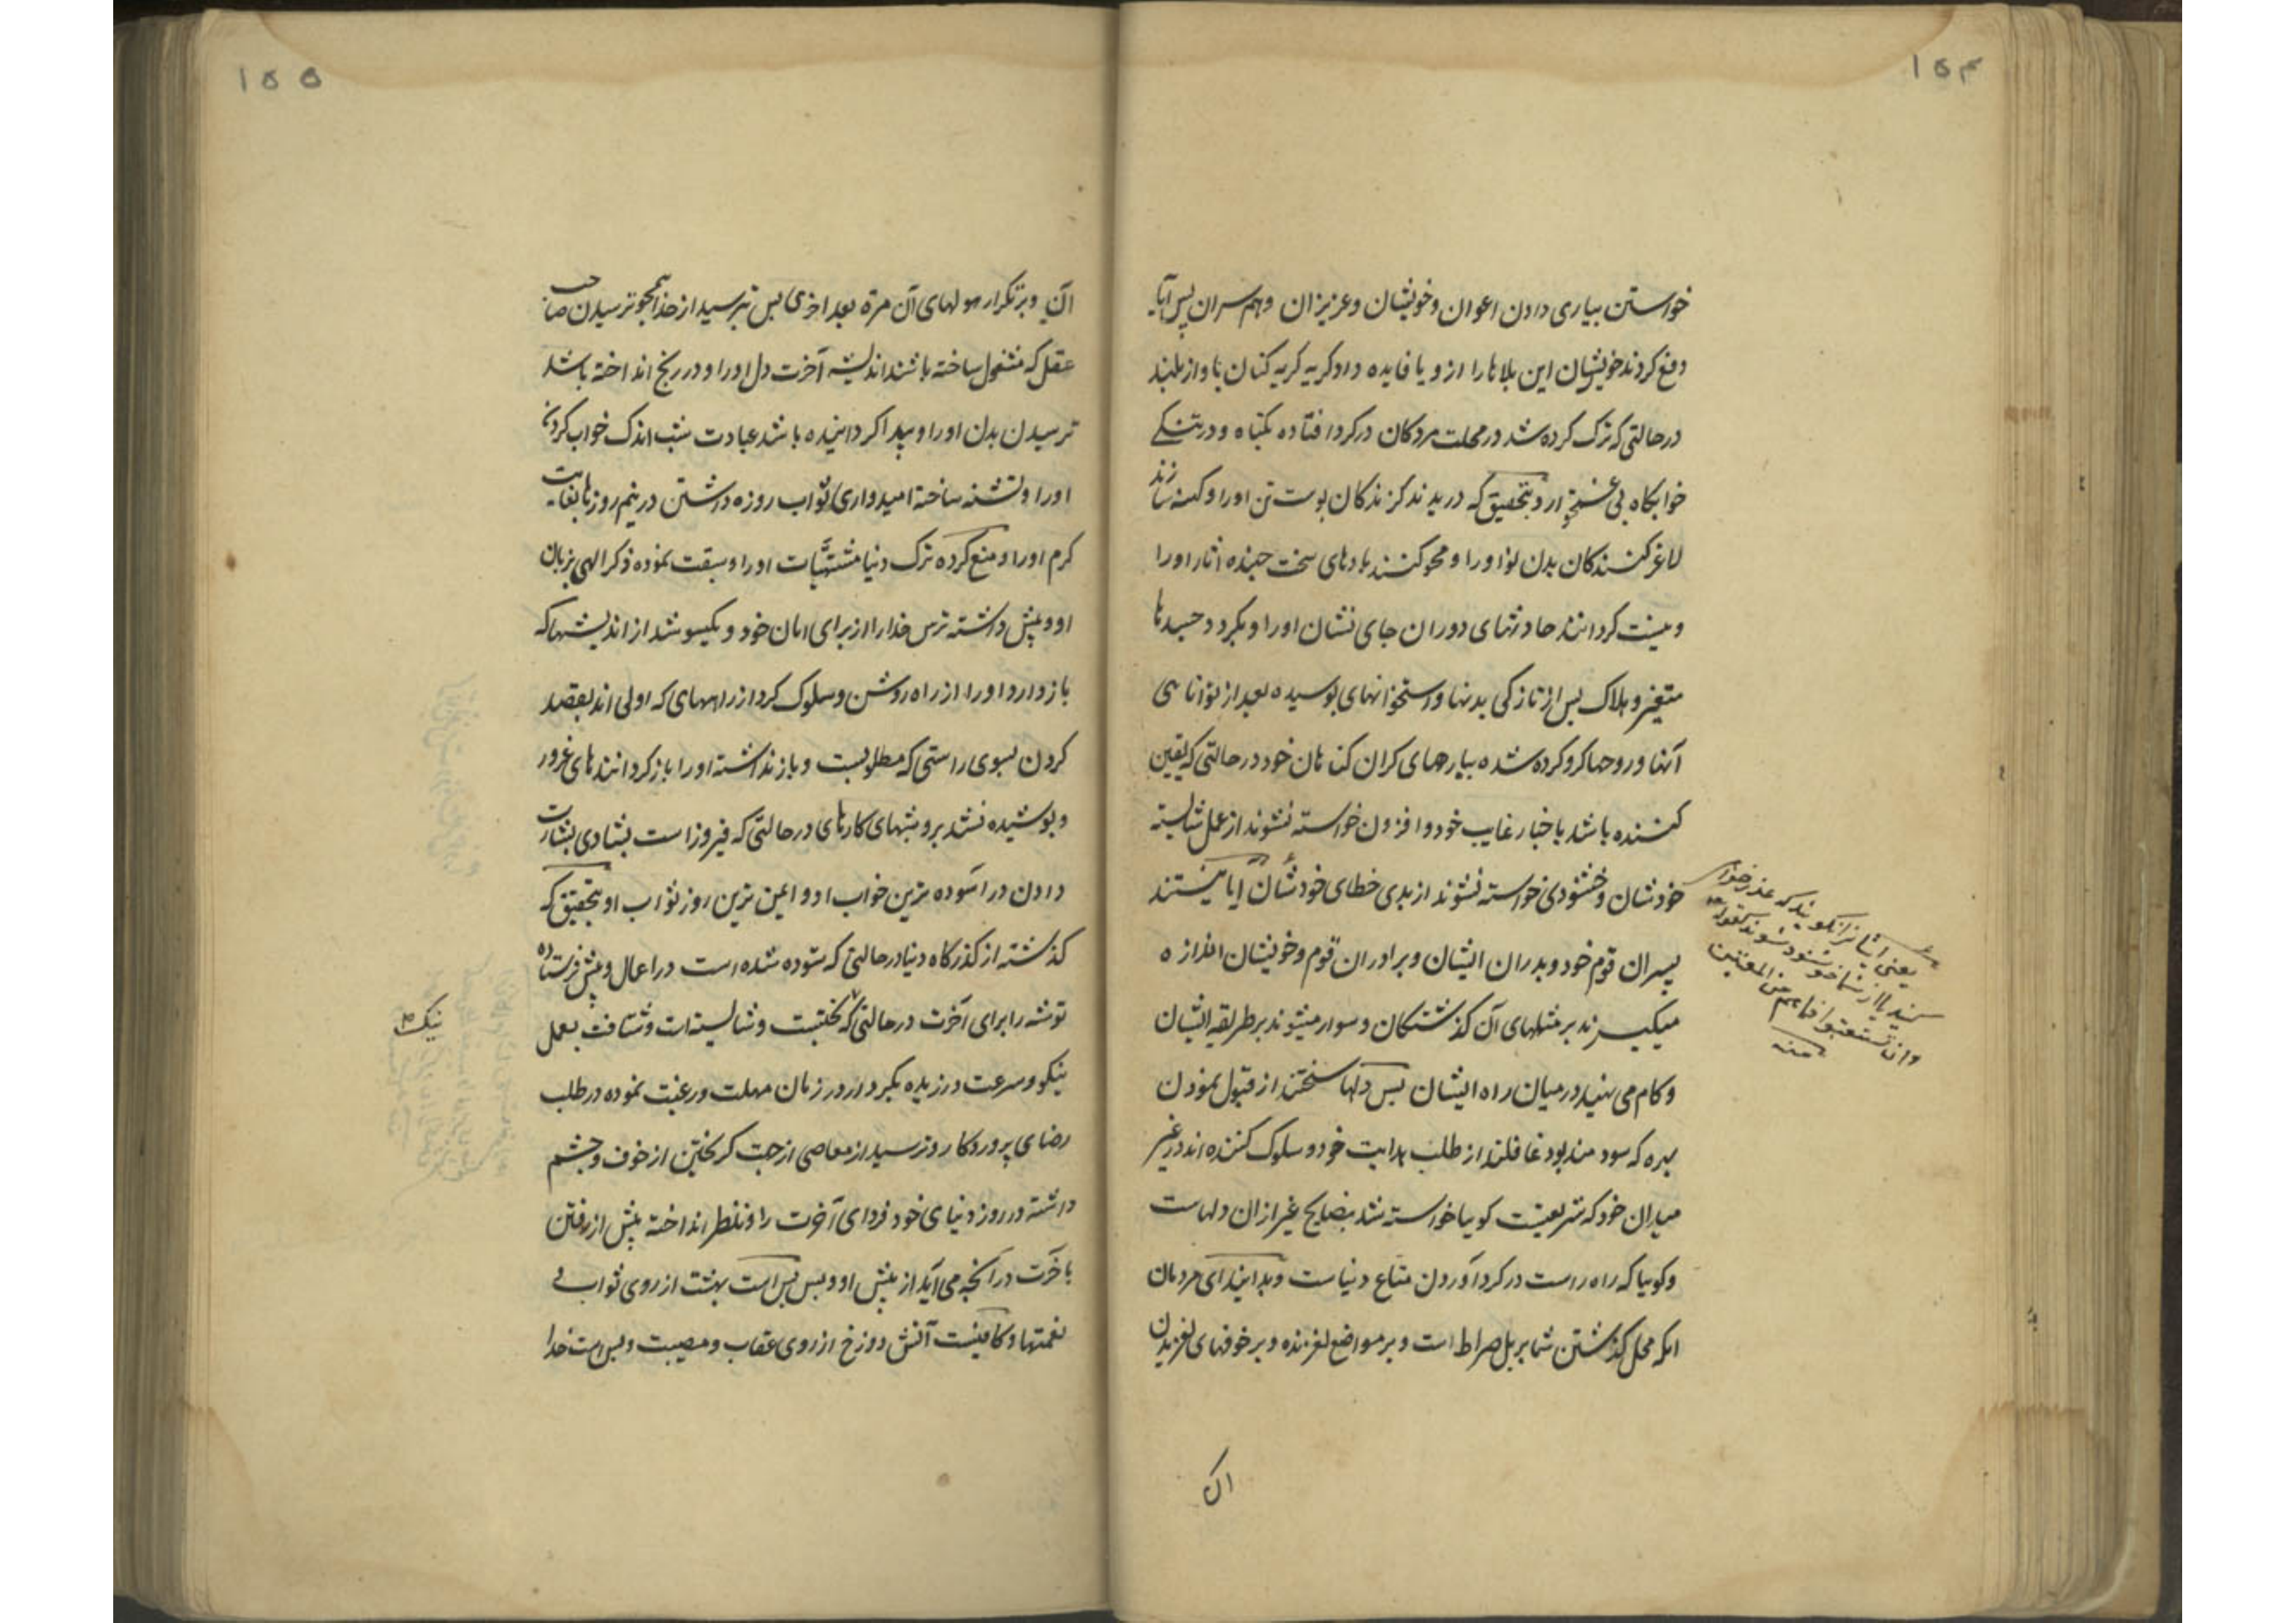 ۱۵۴
خواستن بیاری دادن اعوان و خویشان و عزیزان و همسران پس آیا
دفع کردند خویشان این بلاها را ازو یا فایده داد کریه کریه کنان باواز بلند
در حالتی که ترک کرده شد در محلت مردکان در کرد افتاده بکناه و در تنکی
خوابکاه بی غمخوار و بتحقیق که دریدند کزندکان پوست تن اورا و کهنه سازند
لاغر کنندکان بدن نو اورا و محو کنند بادهای سخت جهنده اثار اورا
و نیست کردانند حادثهای دوران جای نشان اورا و بکردد جسدها
متغیر و هلاک پس از تازکی بدنها و استخوانهای پوسیده بعد از توانائی
آنها و روحها کرو کرده شده ببارهای کران کناهان خود در حالتی که یقین
کننده باشد باخبار غایب خود و افزون خواسته نشوند از عمل شایسته
خودشان و خشنودی خواسته نشوند از بدی خطای خودشان آیا نیستند
یعنی ایشانرا نکویند که عذر خواهی
کنید یا از شما خوشنود شوند کقوله تعالی
وان یستعتبوا فما هم من المعتبین
منه
پسران قوم خود و پدران ایشان و برادران قوم و خویشان اندازه
میکیرند بر مثلهای آن کذشتکان و سوار میشوند بر طریقه ایشان
و کام می نهید در میان راه ایشان پس دلها سختند از قبول نمودن
بهره که سودمند بود غافلند از طلب هدایت خود و سلوک کننده اند در غیر
میدان خود که شریعتست کویا خواسته نشد بنصایح غیر از ان دلهاست
و کویا که راه راست در کرد آوردن متاع دنیاست و بدانید ای مردمان
انکه محل کذشتن شما بر پل صراط است و بر مواضع لغزنده و بر خوفهای لغزیدن
ان
۱۵۵
آن و بر تکرار هولهای آن مرة بعد اخری پس بترسید از خدا همچو ترسیدن صاحب
عقل که مشغول ساخته باشند اندیشه آخرت دل اورا و در رنج انداخته باشد
ترسیدن بدن اورا و بیدار کردانیده باشد عبادت شب اندک خواب کردن
اورا و تشنه ساخته امیدواری ثواب روزه داشتن در نیم روزها بغایت
کرم اورا و منع کرده ترک دنیا مشتهیات اورا و سبقت نموده ذکر الهی بزبان
او و پیش داشته ترس خدا را از برای امان خود و یکسو شد از اندیشها که
باز دارد اورا از راه روشن و سلوک کرد از راههای که اولی اند بقصد
کردن بسوی راستی که مطلوبست و باز نداشته اورا باز کردانندهای غرور
و پوشیده نشد برو شبهای کارهای در حالتی که فیروز است بشادی بشارت
دادن در آسوده ترین خواب او و ایمن ترین روز ثواب او بتحقیق که
کذشته از کذرکاه دنیا در حالتی که ستوده شده است در اعمال و پیش فرستاده
توشه را برای آخرت در حالتی که نیکبختست و شایسته است و شتافت بعمل
نیک
نیکو و سرعت ورزیده بکردار در زمان مهلت و رغبت نموده در طلب
رضای پروردکار و ترسید از معاصی از جهت کریختن از خوف و چشم
داشته در روز دنیای خود فردای آخرت را و بنظر انداخته پیش از رفتن
باخرت در آنچه می آید از پیش او و بس پس است بهشت از روی ثواب و
نعمتها و کافیست آتش دوزخ از روی عقاب و مصیبت و بس است خدا